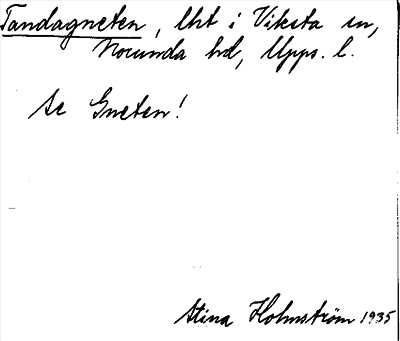 Tandagneten, lht i Viksta sn,
Norunda hd, Upps. l.
Se Gneten!
Stina Holmström 1935